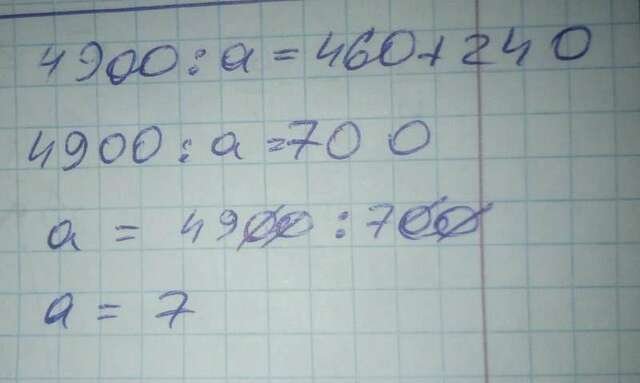 4900 : a = 460 + 240
4900 : a = 700
a = 4900 : 700
a = 7